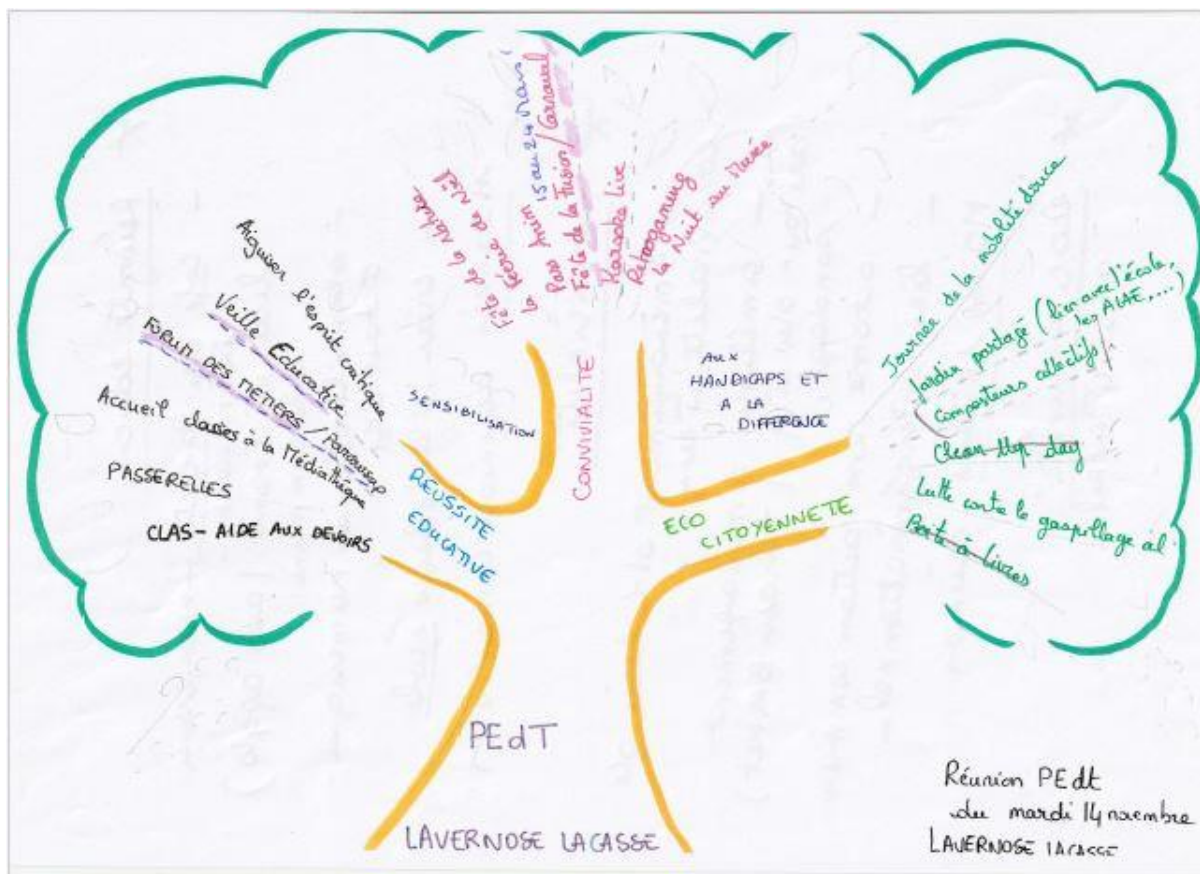 Aiguiser l'esprit critique
Veille Educative
FORUM DES METIERS / Parcoursup
Accueil classes à la Médiathèque
PASSERELLES
CLAS - AIDE AUX DEVOIRS
REUSSITE
EDUCATIVE
SENSIBILISATION
Fête de la
la Féérie de Noël
Pass Anim 15 au 24 Mars
Fête de la Fusion / Carnaval
Karaoke Live
Retrogaming
la Nuit au Musée
CONVIVIALITE
AUX
HANDICAPS ET
A LA
DIFFERENCE
Journée de la mobilité douce
Jardin partagé (lien avec l'école,
les ALAE, ...)
Composteurs collectifs
Clean Up day
Lutte contre le gaspillage al
Boite à livres
ECO
CITOYENNETE
PEdT
LAVERNOSE LACASSE
Réunion PEdt
du mardi 14 novembre
LAVERNOSE LACASSE